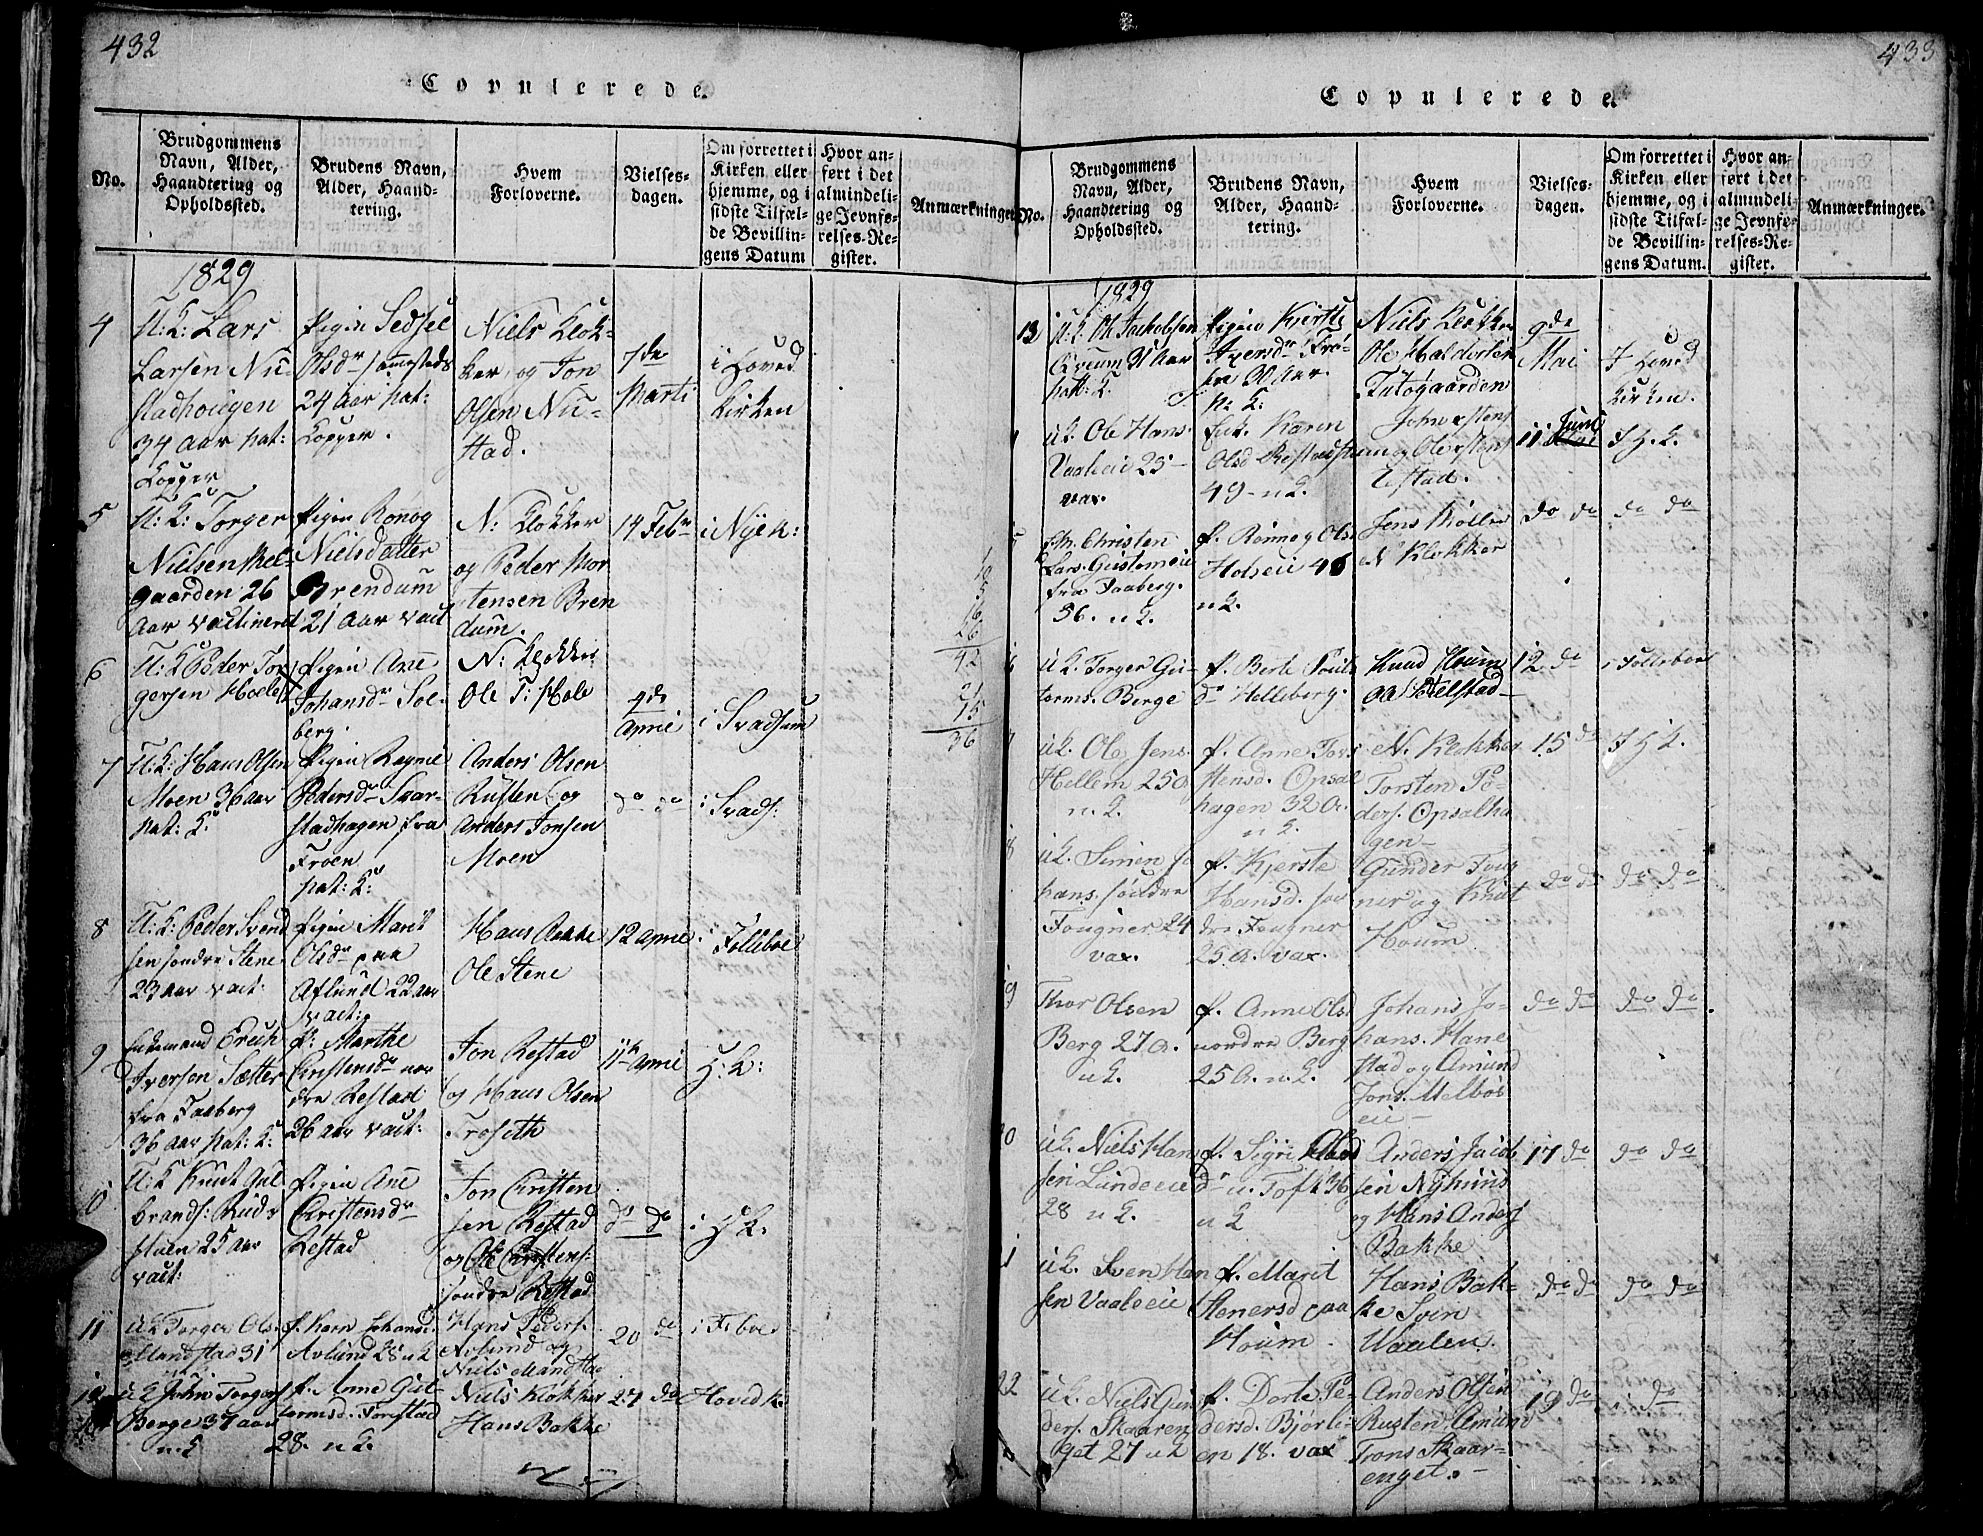 432
Copulerede.
No.
Brudgommens
Navn, Alder,
Haandtering og
Opholdssted.
Brudens Navn,
Alder, Haand-
tering.
Hvem
Forloverne.
Vielses-
dagen.
Om forrettet i
Kirken eller
hjemme, og i
sidste Tilfæl-
de Bevillin-
gens Datum
Hvor an-
ført i det
almindeli-
ge Jevnfø-
relses-Re-
gister.
Anmærkninger
1829
4
U: K: Lars
Larsen Nu-
stadhougen
34 Aar nat:
Kopper
Pigen Sedsel
Olsdr sammesteds
24 Aar nat:
Kopper.
Niels Klok-
ker og Jon
Olsen Nu-
stad.
7de
Marti
i Hoved
Kirken
5
U: K: Torger
Nielsen Mel-
gaarden 26
Aar vactineret
Pigen Rønog
Nielsdatter
Brendum
21 Aar vact
N: Klokker
og Peder Mor
tensen Bren
dum.
14 Febr
i Nye K:
6
U: K Peder Tor
gersen Hoele
Pigen Ane
Johansdr Sol-
berg.
N: Klokker
Ole T: Hole
4de
April
i Svadsum
7
U: K: Hans Olsen
Moen 36 aar
nat: K:
Pigen Ragne
Pedersdr Skar-
stadhagen fra
Froen
nat: K:
Anders Olsen
Rusten og
Anders Jonsen
Moen
do do
i Svads:
8
U: K: Peder Svend
sen søndre Stene
23 Aar vact:
Pigen Marit
Olsdr paa
Aflund 22 aar
vact:
Hans Bakke
Ole Stene
12 April
i Folleboe
9
Enkemand Erich
Iversen Sætter
fra Faaberg
36 Aar nat: K:
P: Marthe
Cristensdr nor
dre Restad
26 Aar vact:
Jon Restad
og Hans Olsen
Froseth
11te April
H: K:
10
U: K Knut Gul
brands: Ruds
stuen 25 Aar
vact:
Pigen Ane
Christensdr
Restad
Jon Cristen
sen Restad
og Ole Cristens:
søndre Restad
do do
i H K:
11
UK Torger Ols.
Mandstad 31
P. Karn Johansd.
Avlund 28 u K
Hans Peders.
Avlund og
Niels Mandstad
20 do
i F.boe
12
UK John Torgers
Berge 37 aar
u. K
P. Anne Gut-
tormsd. Forstad
28. u K.
Niels Klokker
Hans Bakke
27 do
Hovid k.
10
5
16
26
42
21
15
36
433
Copulerede.
No.
Brudgommens
Navn, Alder,
Haandtering og
Opholdssted.
Brudens Navn,
Alder, Haand-
tering.
Hvem
Forloverne.
Vielses-
dagen.
Om forrettet i
Kirken eller
hjemme, og i
sidste Tilfæl-
de Bevillin-
gens Datum.
Hvor an-
ført i det
almindeli-
ge Jevnfø-
relses-Re-
gister.
Anmærkninger.
1829
13
U. K. Ole Jackobsen
Aar
nat: K.
Pigen Kjersti
Iversdr Frø-
Aar.
N: K:
Niels Klokker
Ole Haldorsen
Tutogaarden
9de
Mai
I Hoved
Kirken.
UK. Ole Hans.
Vaaleeie 25-
vax.
Enk. Karen
Olsd Restad
49 - u K.
John
og Ole
Restad.
11 Juni
I H. K.
Christen
Lars.
fra Faaberg.
56. u K.
P. Rønnog Ols
Holseie 46
u K.
Jens Møller
N Klokker
do do
do do
UK. Torger Gu-
torms. Berge
P. Berte Pouls
dr Helleberg.
Knud Houm
12. do
i Follebo
UK. Ole Jens.
Hellem 25 A
u. K.
P. Anne Tors
stensd. Opsal
hagen 32 A.
u K.
N. Klokker
Torsten Pe-
ders. Opsalha
gen-
15 do
I H K.
8
UK. Simen Jo
hans. søndre
Fougner 24
vax.
P. Kjerste
Hansd. søn
dre Fougner
25 A. vax.
Gunder Foug
ner og Knut
Houm
do do
do do
19
Thor Olsen
Berg 27 A.
u K.
P. Anne Olsd
nordre Berg
25 A. u. K.
Johans Jo-
hans. Hane
stad og Amund
Jons. Melbøs
eie-
do do
do do
20
UK. Niels Han
sen Lundeeie
28 u K.
P. Sigri
dr u. Toft 36
u K
Anders Jacob
sen Nyhuus
og Hans Anders
Bakke
17 do
do do
1
UK. Sven Han
sen Vaaleeie
P. Marit
Stenersd paa
Houm.
Hans Bak-
ke Sven
Vaalen.
do do
do do
22
UK. Niels Gun
ders. Skaaren
get 27 u K
P. Dorte Pe-
dersd. Bjørli-
en 18. vax
Anders Olsen
Rusten Amund
Frons Skaar-
enget.-
19 do
i do